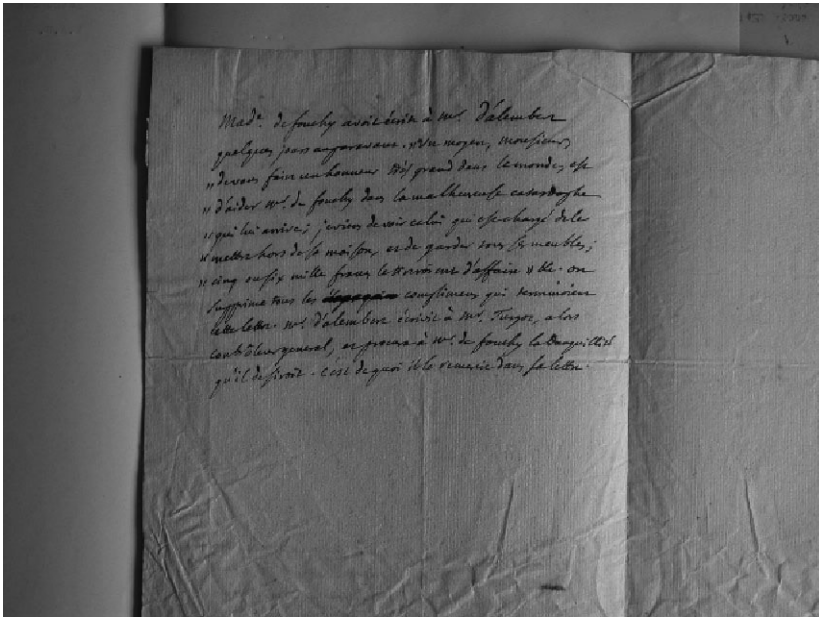 Made. de fouchy avoit écrit à Mr. d'alembert
quelques jours auparavant. "Un moyen, monsieur,
" de vous faire un honneur très grand dans le monde, est
" d'aider Mr. de fouchy dans la malheureuse catastrophe
" qui lui arrive; je viens de voir celui qui est chargé de le
" mettre hors de sa maison, et de garder tous ses meubles;
" cinq ou six mille francs d'affaire &c. on
supprime tous les complimens qui terminoient
cette lettre. Mr. d'alembert écrivit à Mr. Turgot, alors
contrôleur general, et procura à Mr. de fouchy la tranquillité
qu'il desiroit. c'est de quoi il le remercie dans sa lettre.